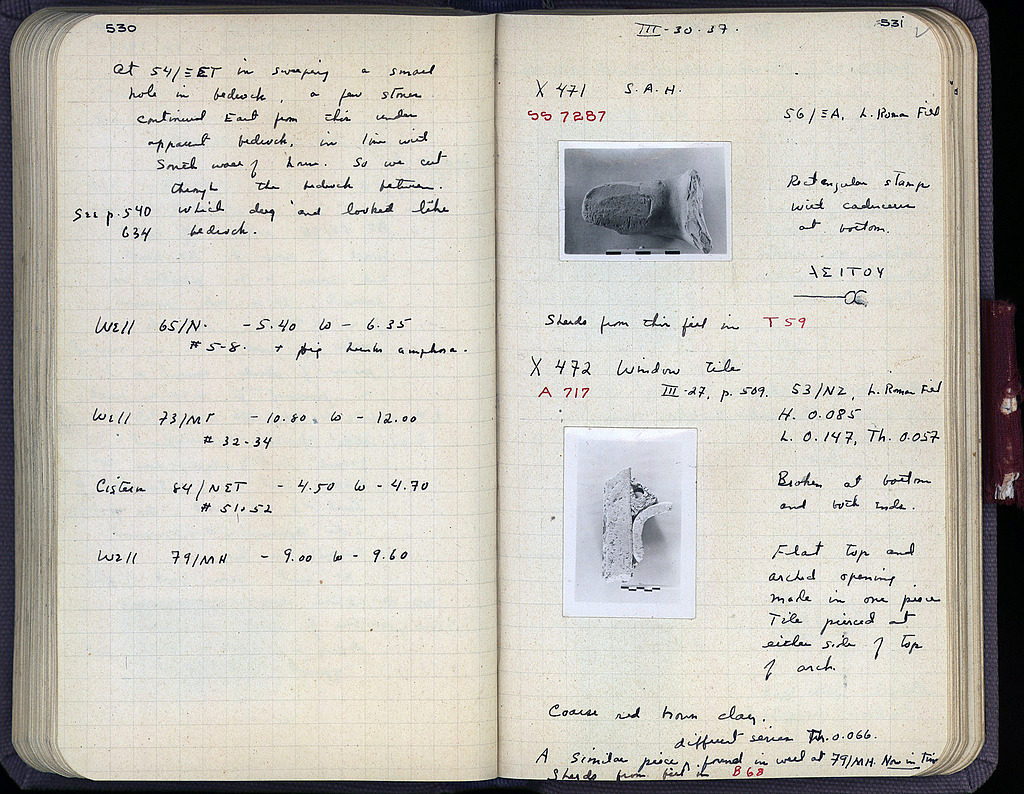 530
At 54/ΞET in sweeping a small
hole in bedrock, a few stones
continued East from this under
apparent bedrock, in line with
South wall of house. So we cut
through the bedrock between.
See p. 540 which dug and looked like
634 bedrock.
Well 65/N. - 5.40 to - 6.35
# 5-8. + pig amphora.
Well 73/MT - 10.80 to - 12.00
# 32-34
Cistern 84/NET - 4.50 to - 4.70
# 51-52
Well 79/MH - 9.00 to - 9.60
531
III-30-37.
X 471 S.A.H.
SS 7287
56/ΞA, L. Roman Fill
Rectangular stamp
with caduceus
at bottom.
ΛΣΙΤΟΥ
Sherds from this fill in T 59
X 472 Window tile
A 717 III-27, p. 509. 53/NZ, L. Roman Fill
H. 0.085
L. 0.147, Th. 0.057
Broken at bottom
and both ends.
Flat top and
arched opening
made in one piece
Tile pierced at
either side of top
of arch.
Coarse red brown clay.
different series Th. 0.066.
A similar piece, found in well at 79/MH. Now in Tins
Sherds from fill in B 68